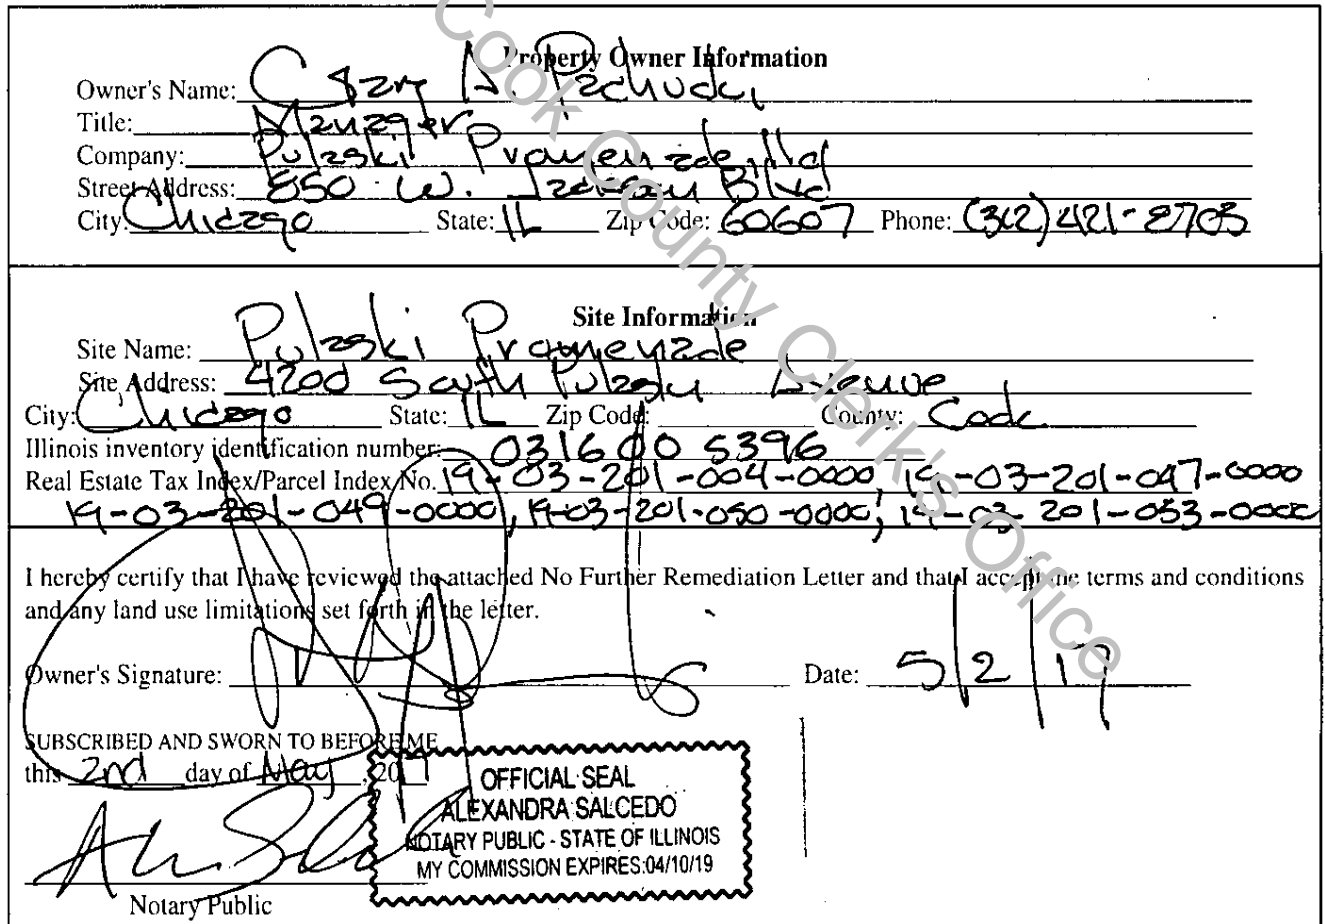 Property Owner Information
Owner's Name: N. Pachucki
Title: Manager
Company: Pulaski Promenade, llc
Street Address: 850 W. Jackson Blvd
City: Chicago State: IL Zip Code: 60607 Phone: (312) 421-8703
Site Information
Site Name: Pulaski Promenade
Site Address: 4200 South Pulaski Avenue
City: Chicago State: IL Zip Code: County: Cook
Illinois inventory identification number: 031600 5396
Real Estate Tax Index/Parcel Index No. 19-03-201-004-0000, 19-03-201-047-0000
19-03-201-049-0000, 19-03-201-050-0000, 19-03-201-053-0000
I hereby certify that I have reviewed the attached No Further Remediation Letter and that I accept the terms and conditions
and any land use limitations set forth in the letter.
Owner's Signature: Date: 5/2/17
SUBSCRIBED AND SWORN TO BEFORE ME
this 2nd day of May, 2017
OFFICIAL SEAL
ALEXANDRA SALCEDO
NOTARY PUBLIC - STATE OF ILLINOIS
MY COMMISSION EXPIRES:04/10/19
Notary Public
Cook County Clerk's Office